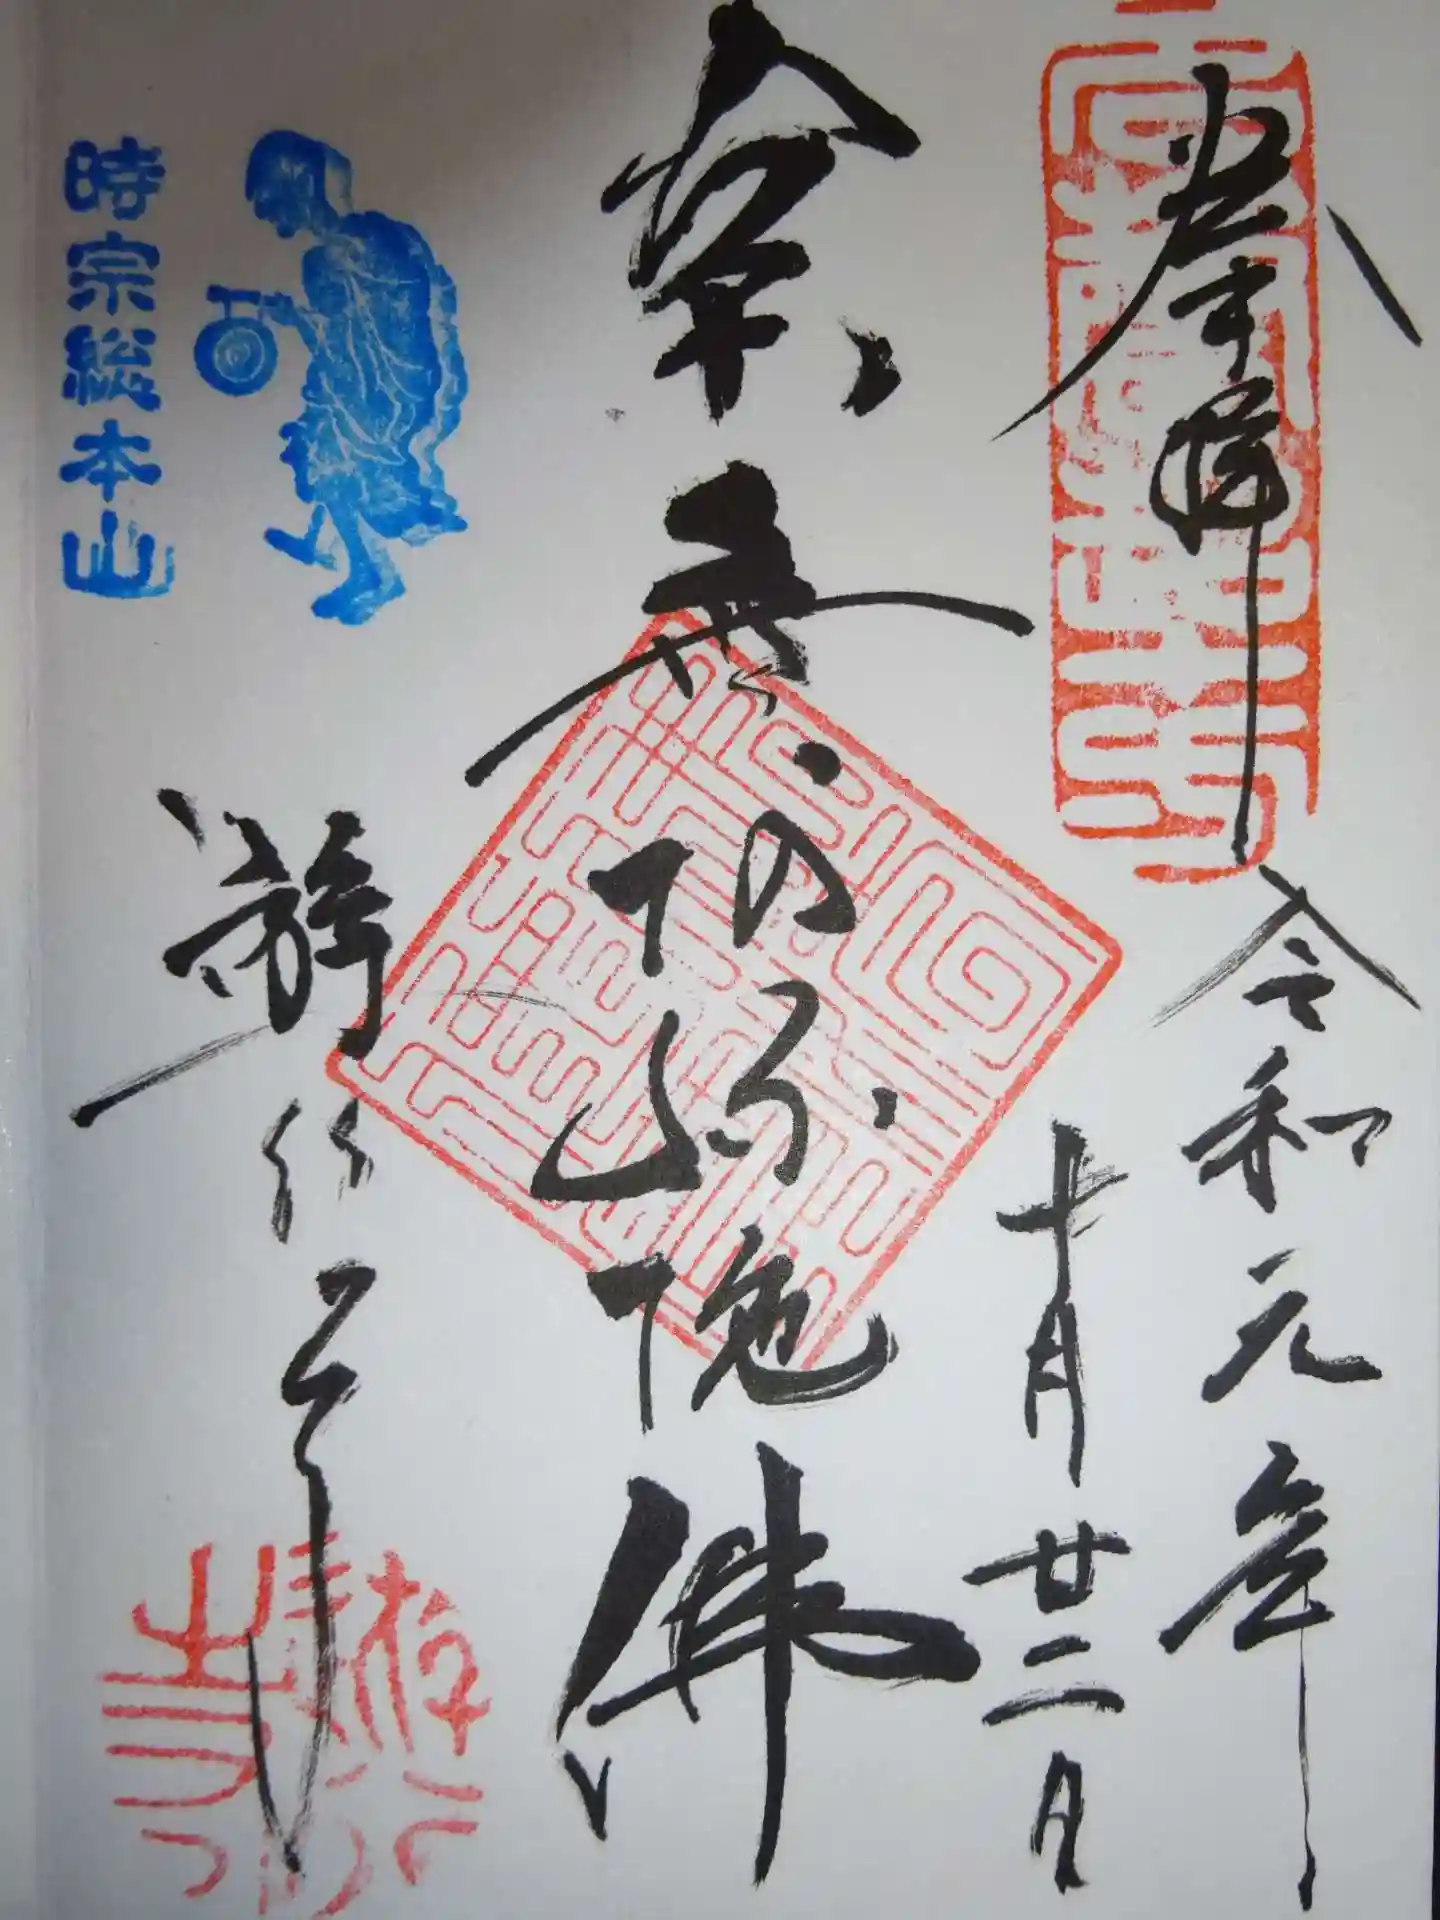 奉拝
令和元年
十月廿二日
南無阿弥陀佛
遊行寺
時宗総本山
遊行寺